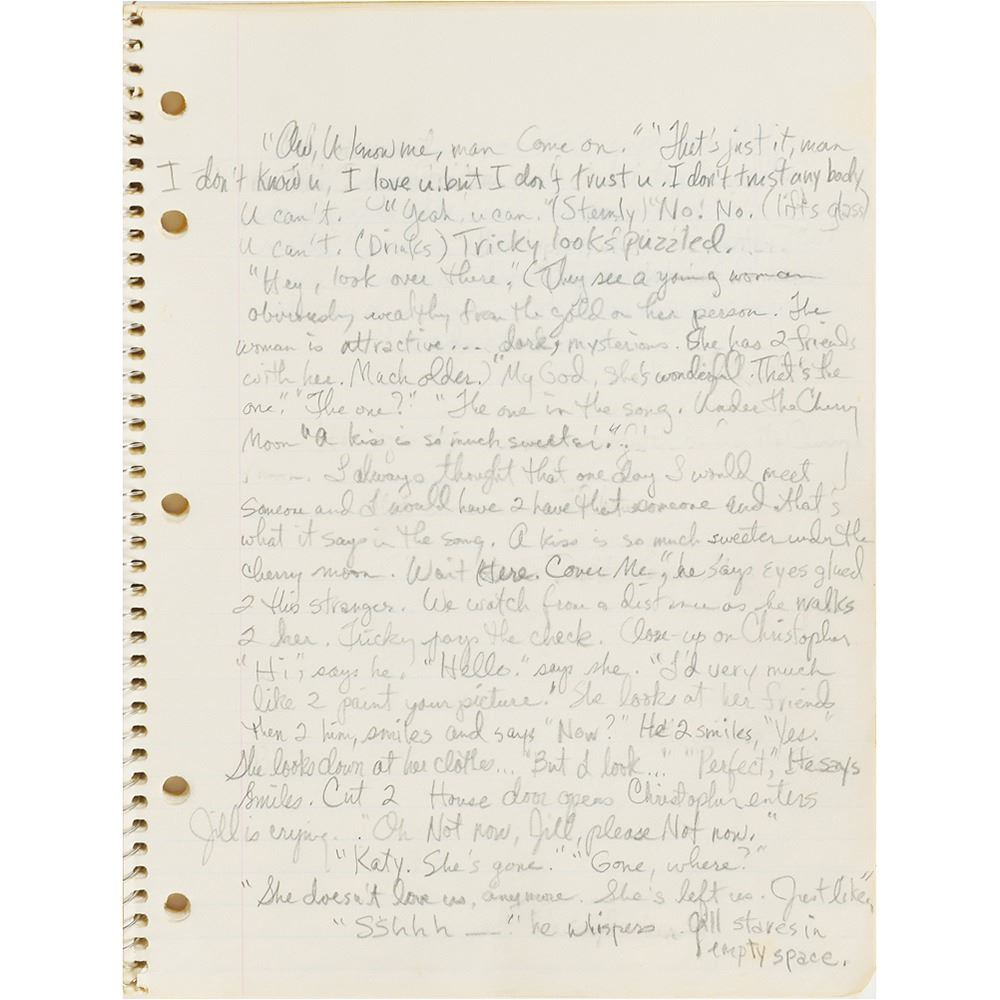 "Aw, U know me, man Come on." "That's just it, man
I don't know u, I love u, but I don't trust u. I don't trust any body
U can't. "Yeah, u can." (Sternly) "No! No. (lifts glass)
U can't. (Drinks) Tricky looks puzzled.
"Hey, look over there." (They see a young woman
obviously wealthy from the gold on her person. The
woman is attractive... dark, mysterious. She has 2 friends
with her. Much older.) "My God, she's wonderful. That's the
one." "The one?" "The one in the song. Under the Cherry
Moon "A kiss is so much sweeter."
I always thought that one day I would meet
someone and I would have 2 have that someone and that's
what it says in the song. A kiss is so much sweeter under the
cherry moon. Wait Here. Cover Me", he says Eyes glued
2 this stranger. We watch from a distance as he walks
2 her. Tricky pays the check. Close-up on Christopher
"Hi", says he. "Hello." says she. "I'd very much
like 2 paint your picture." She looks at her friends
then 2 him, smiles and says "Now?" He 2 smiles, "Yes.
She looks down at her clothes... "But I look..." "Perfect", He says
Smiles. Cut 2 House door opens Christopher enters
Jill is crying. "Oh Not now, Jill, please Not now."
"Katy. She's gone." "Gone, where?"
"She doesn't love us, anymore. She's left us. Just like"
"Sshhh —" he whispers. Jill stares in
empty space.